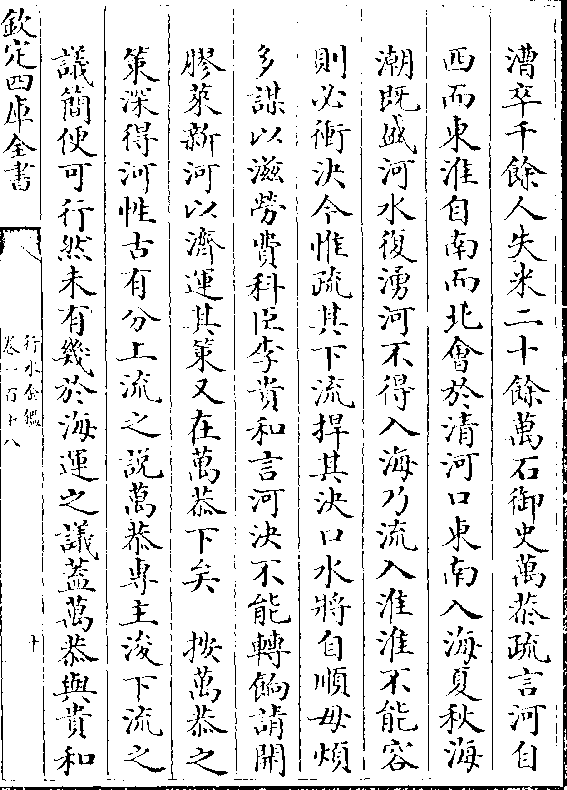 漕卒千餘人失米二十餘萬石御史萬恭疏言河自
西而東淮自南而北會於清河口東南入海夏秋海
潮既盛河水復湧河不得入海乃流入淮淮不能容
則必衝決今惟疏其下流捍其決口水將自順毋煩
多謀以滋勞費科臣李貴和言河決不能轉餉請開
膠萊新河以濟運其策又在萬恭下矣 按萬恭之
策深得河性古有分上流之說萬恭專主浚下流之
議簡便可行然未有幾於海運之議蓋萬恭與貴和
欽定四庫全書
行水金鑑
卷一百十八
十